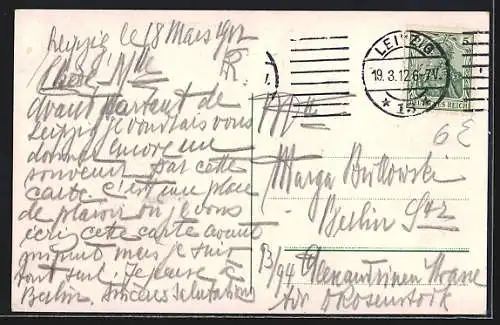 Leipzig le 18 Mars 1912
Chère Mlle
avant partant de
Leipzig je voudrais vous
donner encore un
souvenir par cette
carte. C'est une place
de plaisir où je vous
écris cette carte avant
minuit mais je suis
tout seul. Je pense à
Berlin. Sincères Salutations
LEIPZIG
19.3.12.6-7V.
* 13 *
DEUTSCHES REICH
6E
Mlle
Marga Butkowski
Berlin
B/94 Alexandrinen Strasse
Adr. Rosenstock